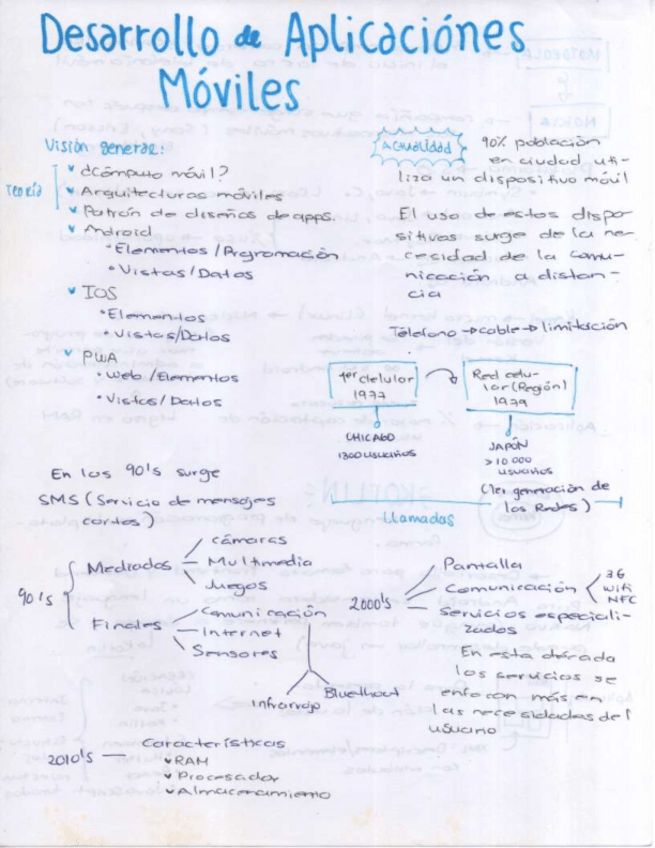 Desarrollo de Aplicaciónes
Móviles
Visión general:
Teoría
¿Cómputo móvil?
Arquitecturas móviles
Patrón de diseños de apps.
Android
• Elementos / Programación
• Vistas / Datos
IOS
• Elementos
• Vistas/Datos
PWA
• Web / Elementos
• Vistas / Datos
Actualidad
90% población
en ciudad uti-
liza un dispositivo móvil
El uso de estos dispo-
sitivos surge de la ne-
cesidad de la comu-
nicación a distan-
cia
Teléfono → cable → limitación
1er Celular
1977
CHICAGO
1300 usuarios
Red celu-
lar (Región)
1979
JAPÓN
>10 000
usuarios
(1er generación de
las Redes)
Llamadas
En los 90's surge
SMS (Servicio de mensajes
cortos)
90's
Mediados
cámaras
Multimedia
Juegos
Finales
Comunicación
Internet
Sensores
Infrarrojo
Bluethout
2000's
Pantalla
Comunicación
3G
Wifi
NFC
Servicios especiali-
zados
En esta década
los servicios se
enfocan más en
las necesidades del
usuario
2010's
Características
RAM
Procesador
Almacenamiento